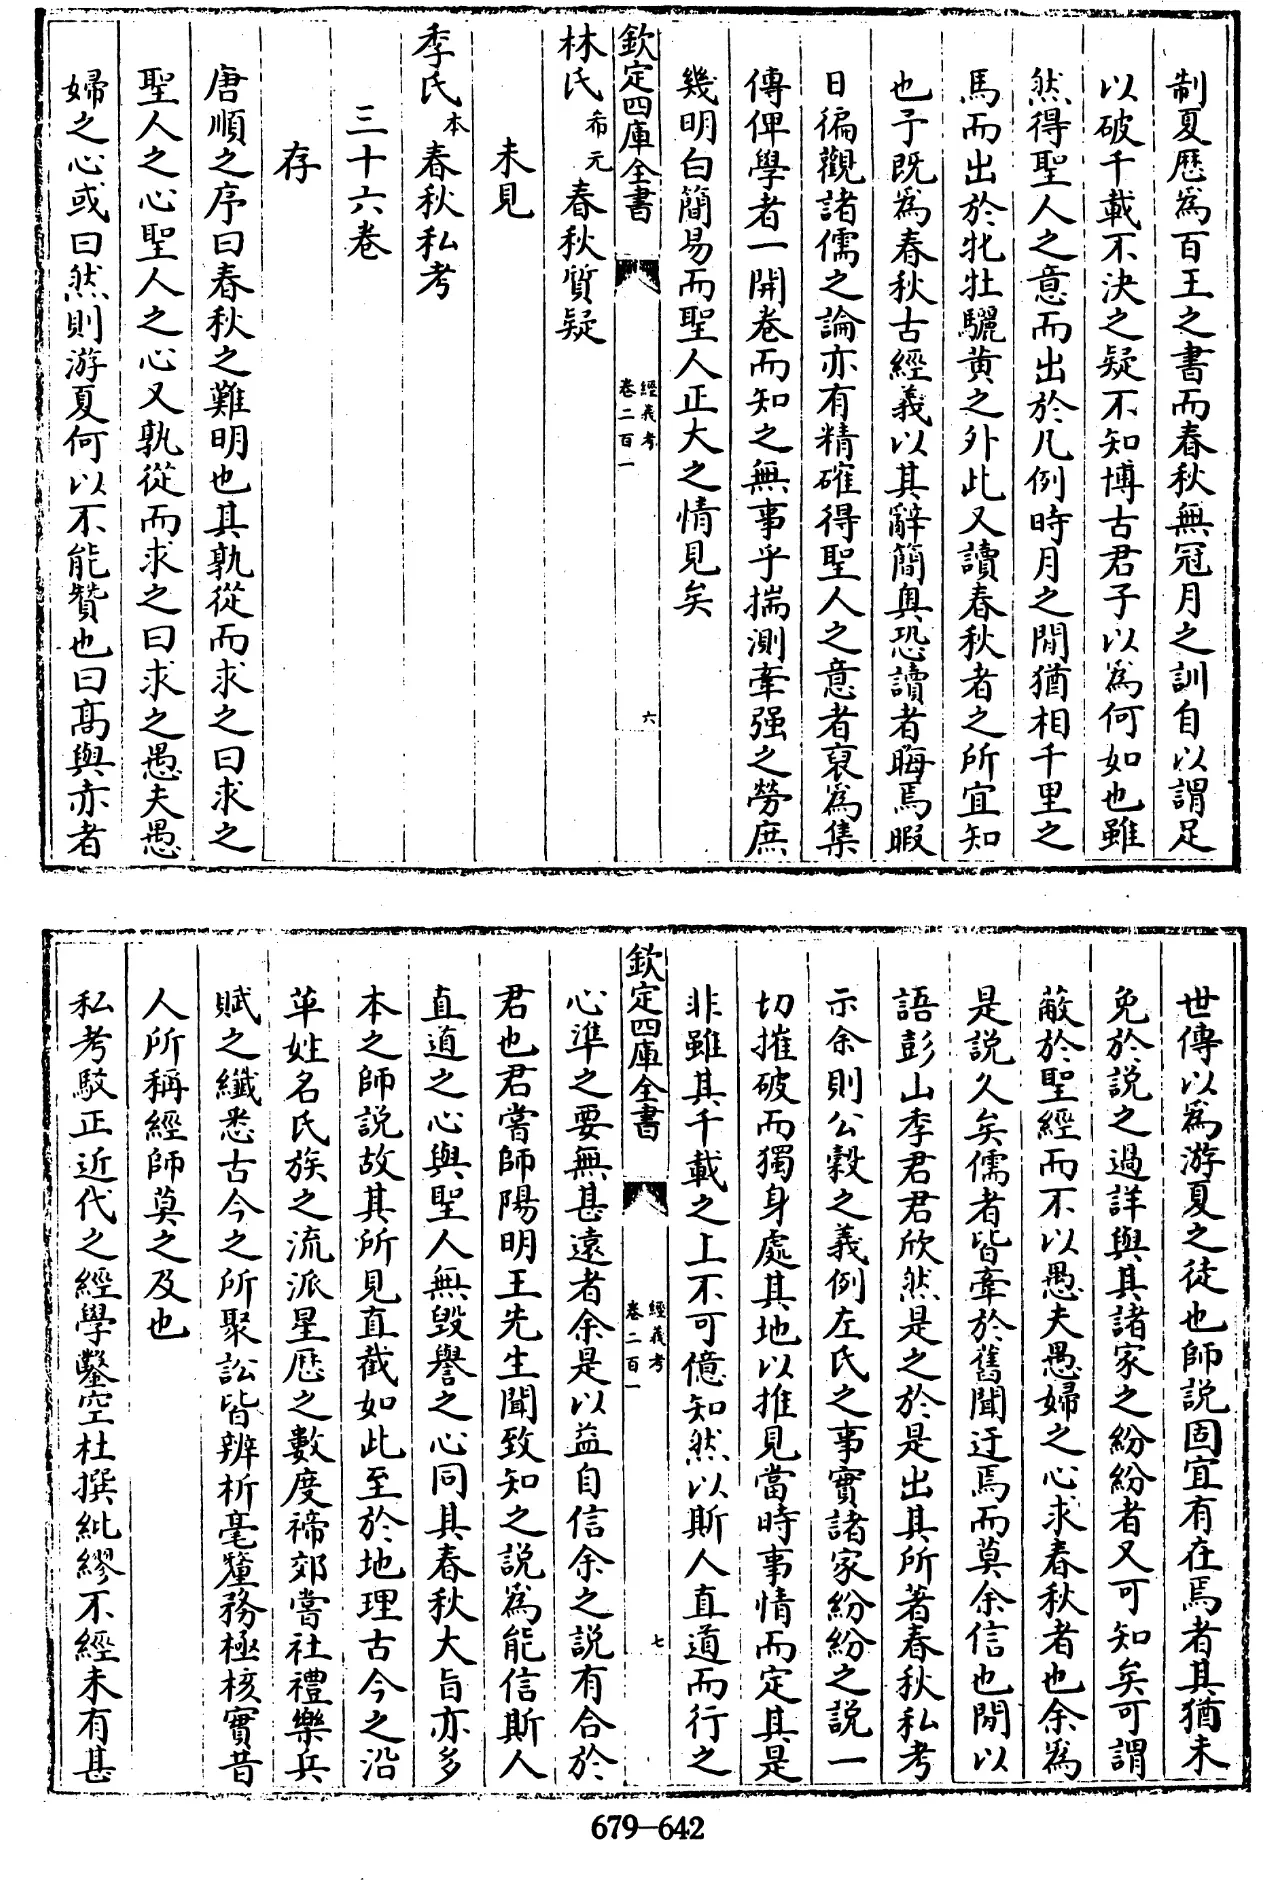 制夏厯爲百王之書而春秋無冠月之訓自以謂足
以破千載不決之疑不知博古君子以爲何如也雖
然得聖人之意而出於凡例時月之閒猶相千里之
馬而出於牝牡驪黄之外此又讀春秋者之所宜知
也予既爲春秋古經義以其辭簡奥恐讀者晦焉暇
日徧觀諸儒之論亦有精確得聖人之意者裒爲集
傳俾學者一開卷而知之無事乎揣測牽强之勞庶
幾明白簡易而聖人正大之情見矣
欽定四庫全書
經義考
卷二百一
六
林氏希元春秋質疑
未見
季氏本春秋私考
三十六卷
存
唐順之序曰春秋之難明也其孰從而求之曰求之
聖人之心聖人之心又孰從而求之曰求之愚夫愚
婦之心或曰然則游夏何以不能贊也曰髙與赤者
世傳以爲游夏之徒也師説固宜有在焉者其猶未
免於説之過詳與其諸家之紛紛者又可知矣可謂
蔽於聖經而不以愚夫愚婦之心求春秋者也余爲
是説久矣儒者皆牽於舊聞迂焉而莫余信也閒以
語彭山季君君欣然是之於是出其所著春秋私考
示余則公穀之義例左氏之事實諸家紛紛之説一
切摧破而獨身處其地以推見當時事情而定其是
非雖其千載之上不可億知然以斯人直道而行之
欽定四庫全書
經義考
卷二百一
七
心準之要無甚遠者余是以益自信余之説有合於
君也君嘗師陽明王先生聞致知之説爲能信斯人
直道之心與聖人無毁譽之心同其春秋大旨亦多
本之師説故其所見直截如此至於地理古今之沿
革姓名氏族之流派星厯之數度禘郊嘗社禮樂兵
賦之纖悉古今之所聚訟皆辨析毫釐務極核實昔
人所稱經師莫之及也
私考駁正近代之經學鑿空杜撰紕繆不經未有甚
679—642